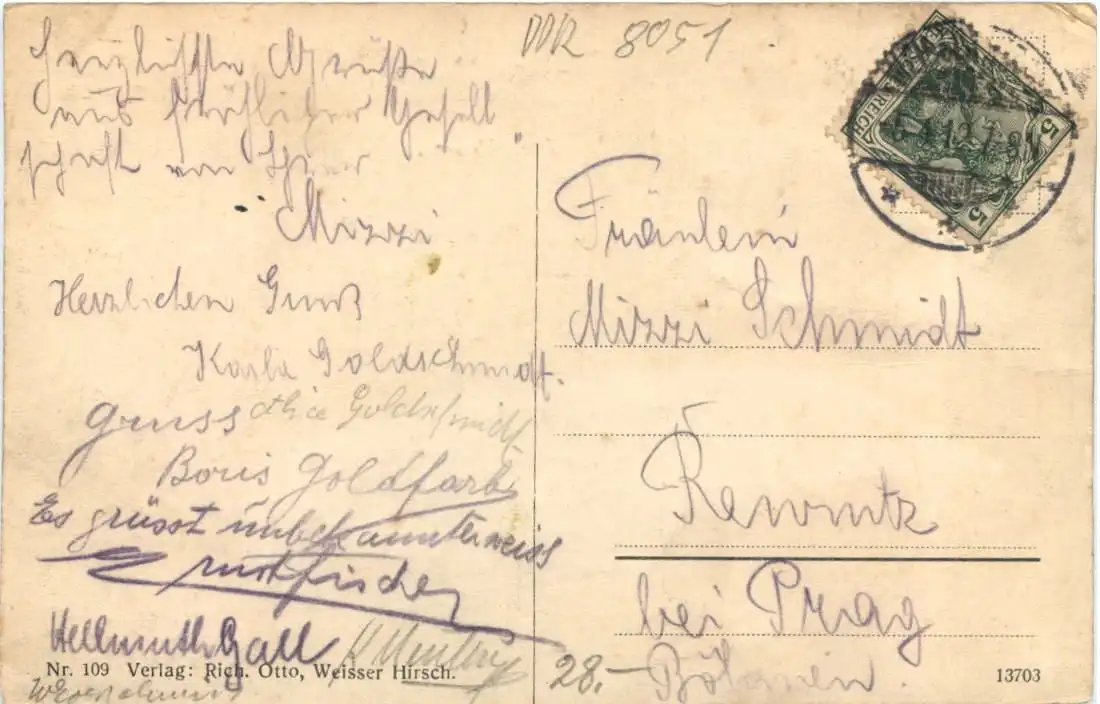 DDR 8051
Herzlichste Grüße
aus fröhlicher Gesell
schaft von Ihrer
Mizzi
Herzlichen Gruß
Karla Goldschmidt.
Gruss Alice Goldschmidt
Boris Goldfarb
Es grüsst unbekannterweise
Hellmuth Gall
Nr. 109 Verlag: Rich. Otto, Weisser Hirsch.
REICH
5
5
Fräulein
Mizzi Schmidt
Řewnitz
bei Prag
Böhmen.
28.-
13703